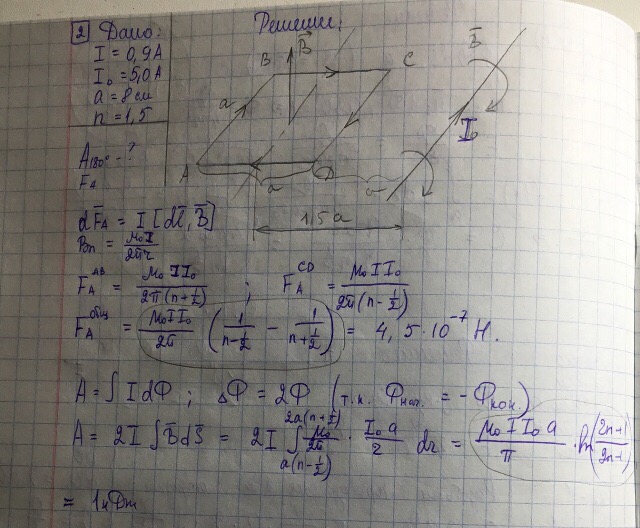 2 Дано: Решение:
I = 0,9 A
I₀ = 5,0 A
a = 8 см
n = 1,5
A₁₈₀° - ?
F_A
B B⃗ C B⃗
a I₀
A a D a
1,5 a
dF̄_A = I [dl̄, B̄]
Bп = μ₀I / 2πr
F_A^AB = μ₀ I I₀ / 2π(n+½) ; F_A^CD = μ₀ I I₀ / 2π(n-½)
F_A^общ = μ₀ I I₀ / 2π (1/(n-½) - 1/(n+½)) = 4,5·10⁻⁷ Н.
A = ∫ I dФ ; ΔФ = 2Ф (т.к. Фнач. = -Фкон.)
A = 2I ∫ B̄ dS̄ = 2I ∫_{a(n-½)}^{2a(n+½)} μ₀/2π · I₀ a / 2 dr = μ₀ I I₀ a / π · ln(2n+1 / 2n-1)
= 1нДж